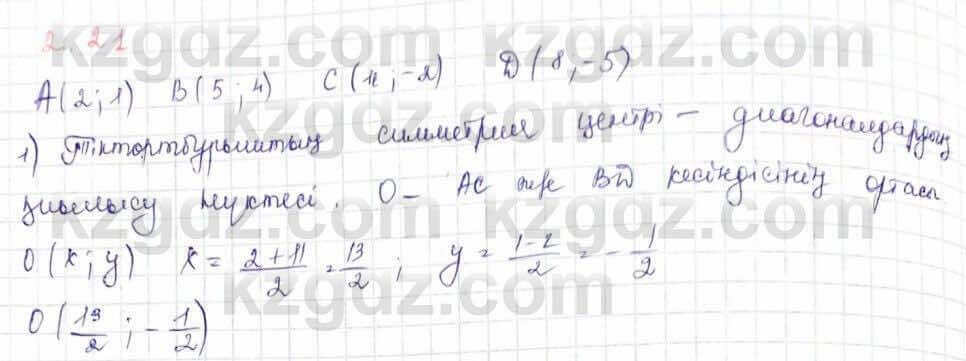 2.21
A(2;1) B(5;4) C(11;-2) D(8;-5)
1) Тіктөртбұрыштың симметрия центрі – диагональдардың
қиылысу нүктесі. O – AC және BD кесіндісінің ортасы
O(x;y) x = \frac{2+11}{2} = \frac{13}{2} ; y = \frac{1-2}{2} = -\frac{1}{2}
O(\frac{13}{2} ; -\frac{1}{2})
kzgdz.com kzgdz.com
kzgdz.com kzgdz.com
kzgdz.com kzgdz.com
kzgdz.com